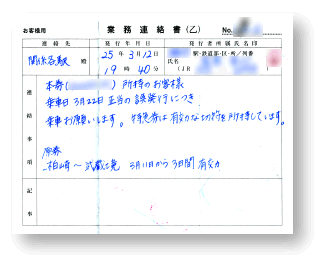 お客様用
業務連絡書(乙)
No.
連絡先
発行年月日
発行者所属氏名印
関係各駅 殿
25年3月12日
19時40分
駅・鉄道部・区・所／列番
氏名
(JR
連絡事項
本券( )所持のお客様
乗車日3月22日 正当の誤発行につき
乗車お願いします。特急券は有効な切符を所持しています。
原券
柏崎～武蔵境 3月11日から3日間有効
記事